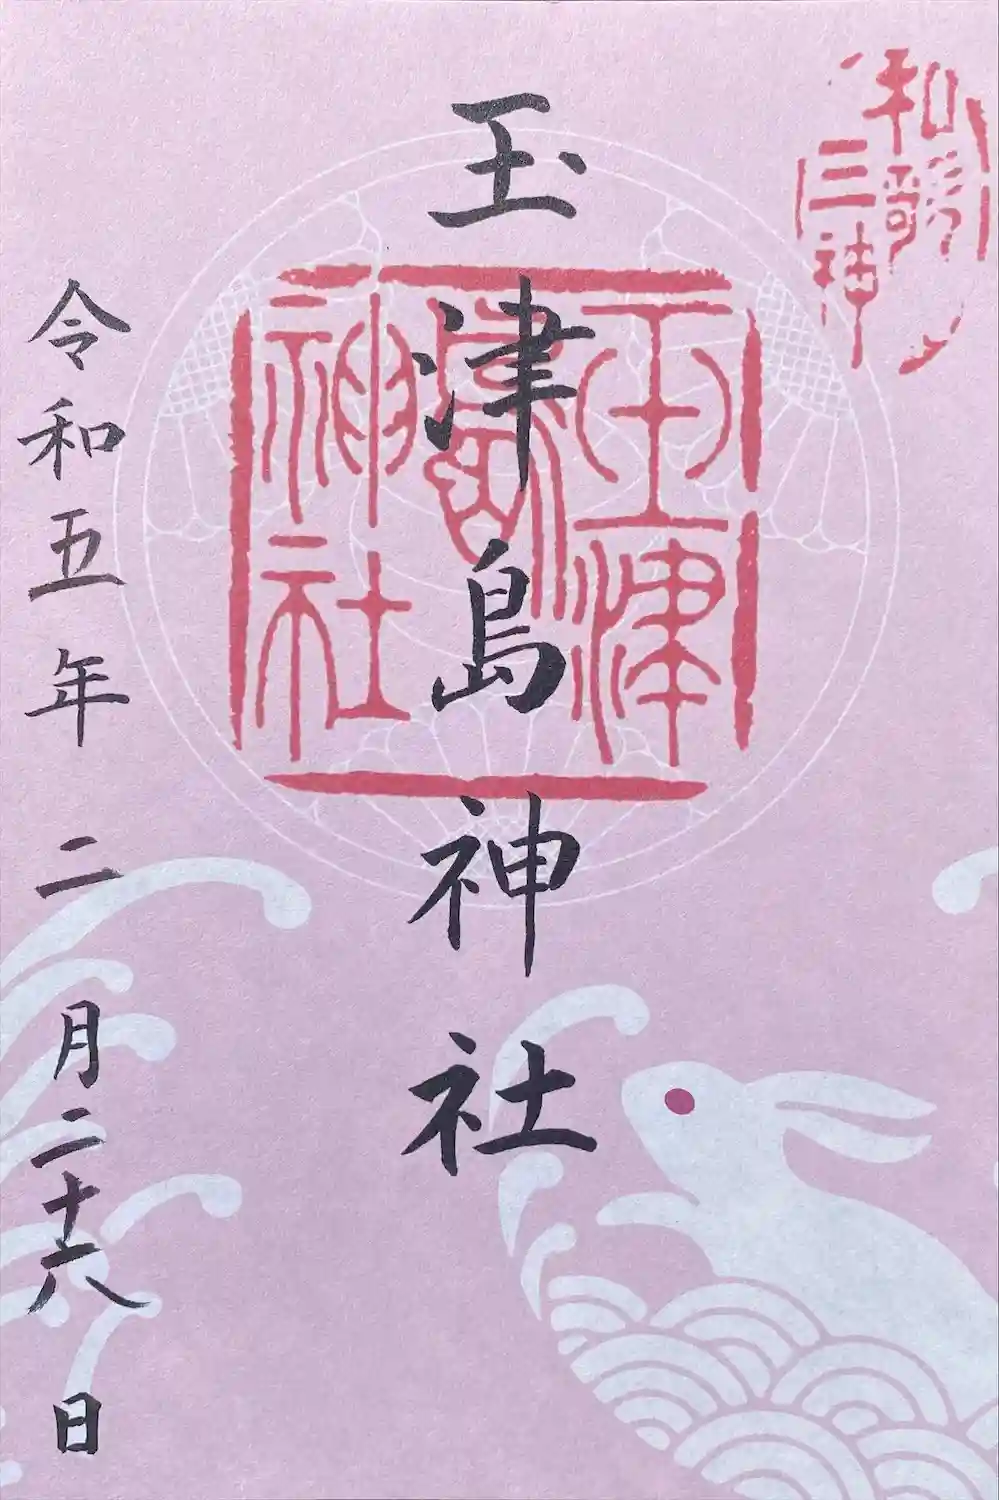 和歌
三神
玉津島神社
玉津
嶋
神社
令和五年 二月二十六日